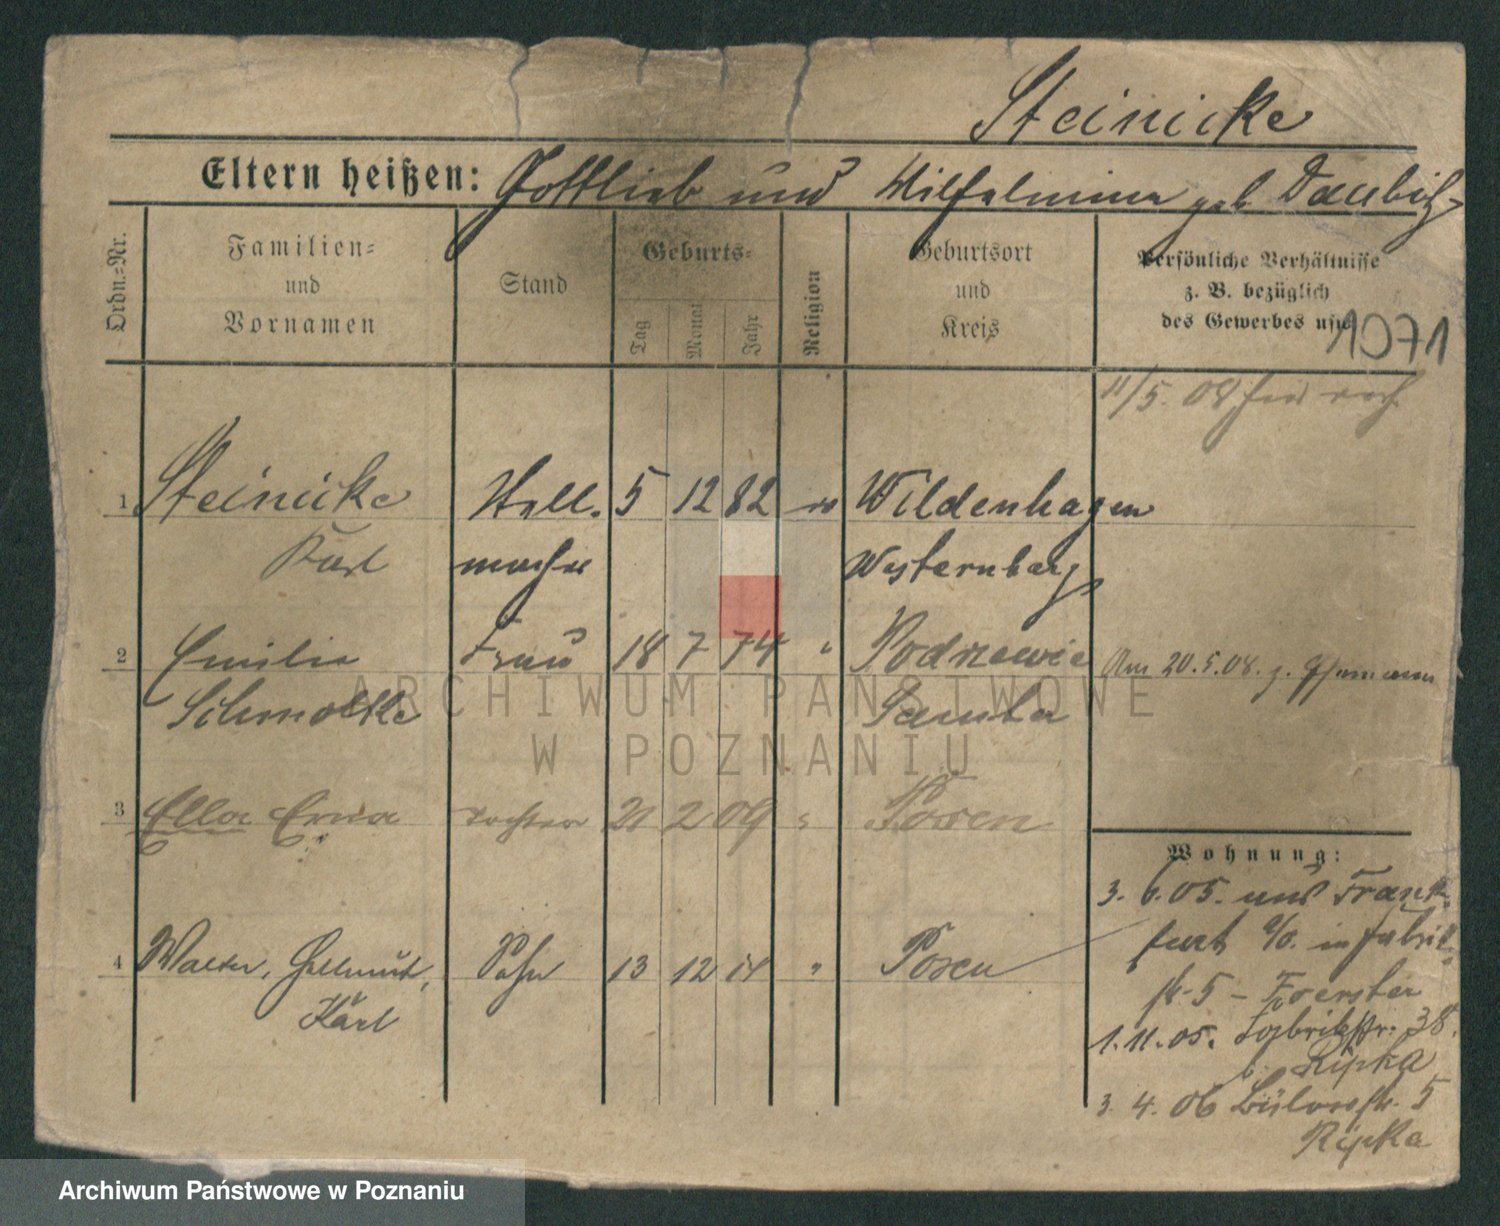 Steinicke
Eltern heißen: Gottlieb und Wilhelmine geb. Daubitz
Ordn.-Nr.
Familien- und Vornamen
Stand
Geburts-
Tag
Monat
Jahr
Religion
Geburtsort und Kreis
Persönliche Verhältnisse
z. B. bezüglich
des Gewerbes usw.
1071
11/5. 08
1 Steinicke Stell. 5 12 82 Wildenhagen
Karl macher Westernberg
2 Emilie Frau 18 7 74 " Podrzewie
Schmolke Samter
Am 20.5.08. z.
3 Ella Erna Tochter 21 2 09 " Posen
Wohnung:
3. 6. 05. aus Frank-
furt a/O. in Fabrik-
str. 5 – Foerster
4 Walter, Hellmut, Sohn 13 12 11 " Posen
Karl
1. 11. 05. Fabrikstr. 38.
b. Ripka
3. 4. 06 Bülowstr. 5
Ripka
ARCHIWUM PAŃSTWOWE
W POZNANIU
Archiwum Państwowe w Poznaniu